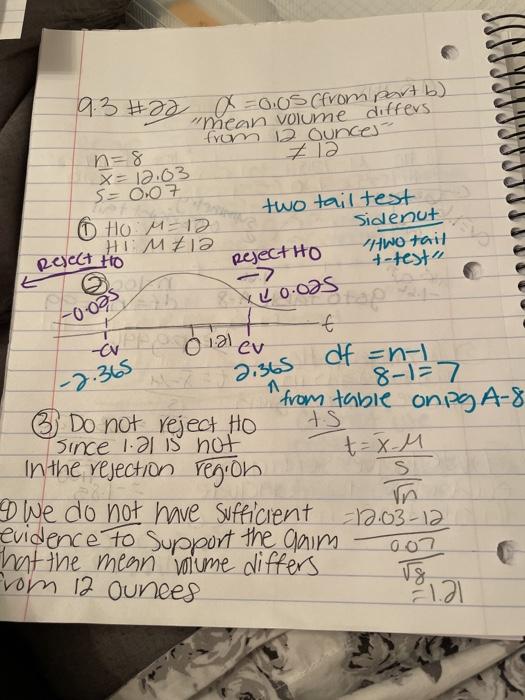 9.3 #22 α = 0.05 (from part b)
"mean volume differs
from 12 ounces"
≠ 12
n = 8
x̄ = 12.03
S = 0.07
two tail test
sidenut
"two tail
t-test"
① H0: M = 12
H1: M ≠ 12
Reject H0
Reject H0
②
-0.025
0.025
0 1.21
t
-cv
cv
-2.365
2.365
df = n-1
8-1 = 7
from table on pg A-8
③ Do not reject H0
since 1.21 is not
in the rejection region
t = x̄ - M
S
√n
④ We do not have sufficient
evidence to support the claim
that the mean volume differs
from 12 ounces
= 12.03 - 12
0.07
√8
= 1.21